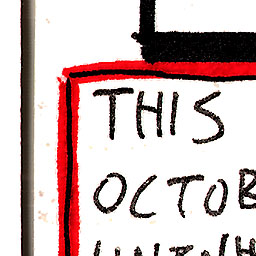 THIS
OCTOB